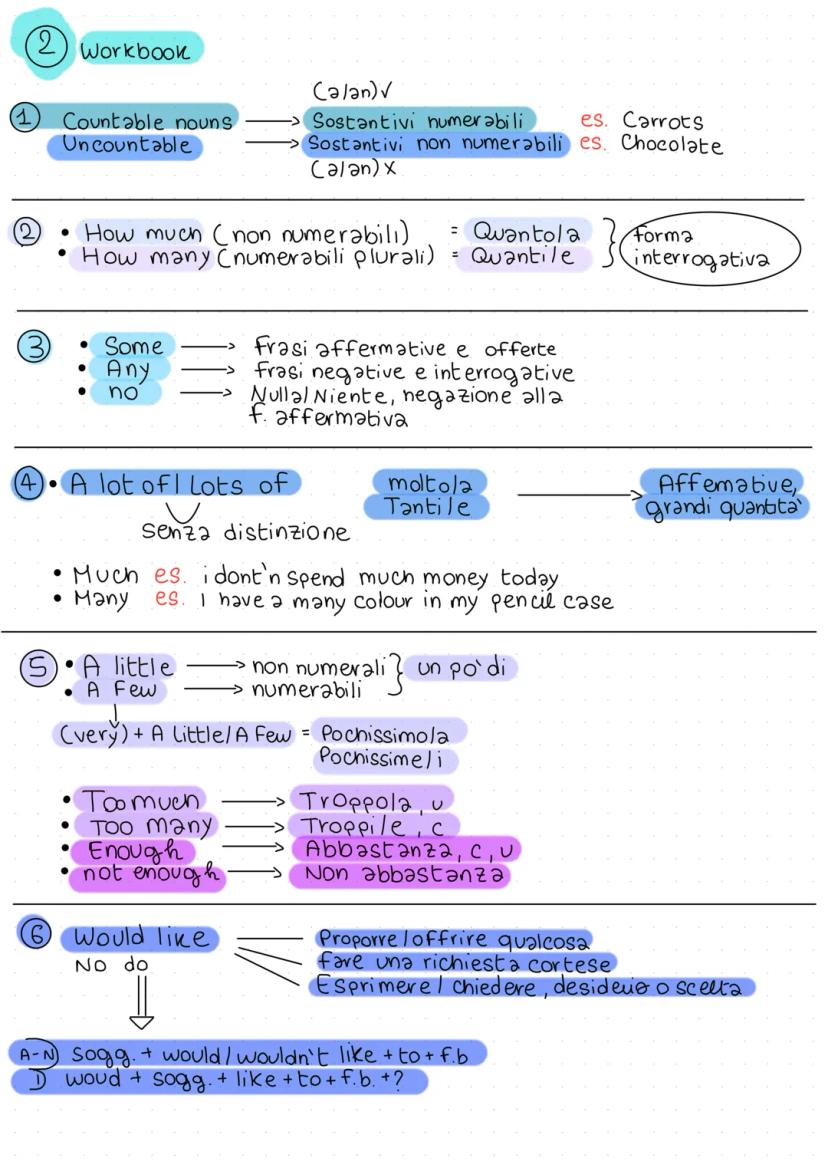 2 Workbook
(a/an)√
1 Countable nouns → Sostantivi numerabili es. Carrots
Uncountable → Sostantivi non numerabili es. Chocolate
(a/an) x
2 • How much (non numerabili) = Quanto/a } forma
• How many (numerabili plurali) = Quanti/e interrogativa
3 • Some → Frasi affermative e offerte
• Any → Frasi negative e interrogative
• no → Nulla/Niente, negazione alla
f. affermativa
4 • A lot of/ Lots of molto/a → Affemative,
Tanti/e grandi quantità
senza distinzione
• Much es. i dont'n spend much money today
• Many es. I have a many colour in my pencil case
5 • A little → non numerali } un po' di
• A Few → numerabili
(very) + A little/A Few = Pochissimo/a
Pochissime/i
• Too much → Troppo/a, u
• Too many → Troppi/e, c
• Enough → Abbastanza, c, u
• not enough → Non abbastanza
6 Would like Proporre/offrire qualcosa
No do fare una richiesta cortese
Esprimere/ chiedere, desiderio o scelta
A-N) sogg. + would/wouldn't like + to + f.b
I) woud + sogg. + like + to + f.b. + ?